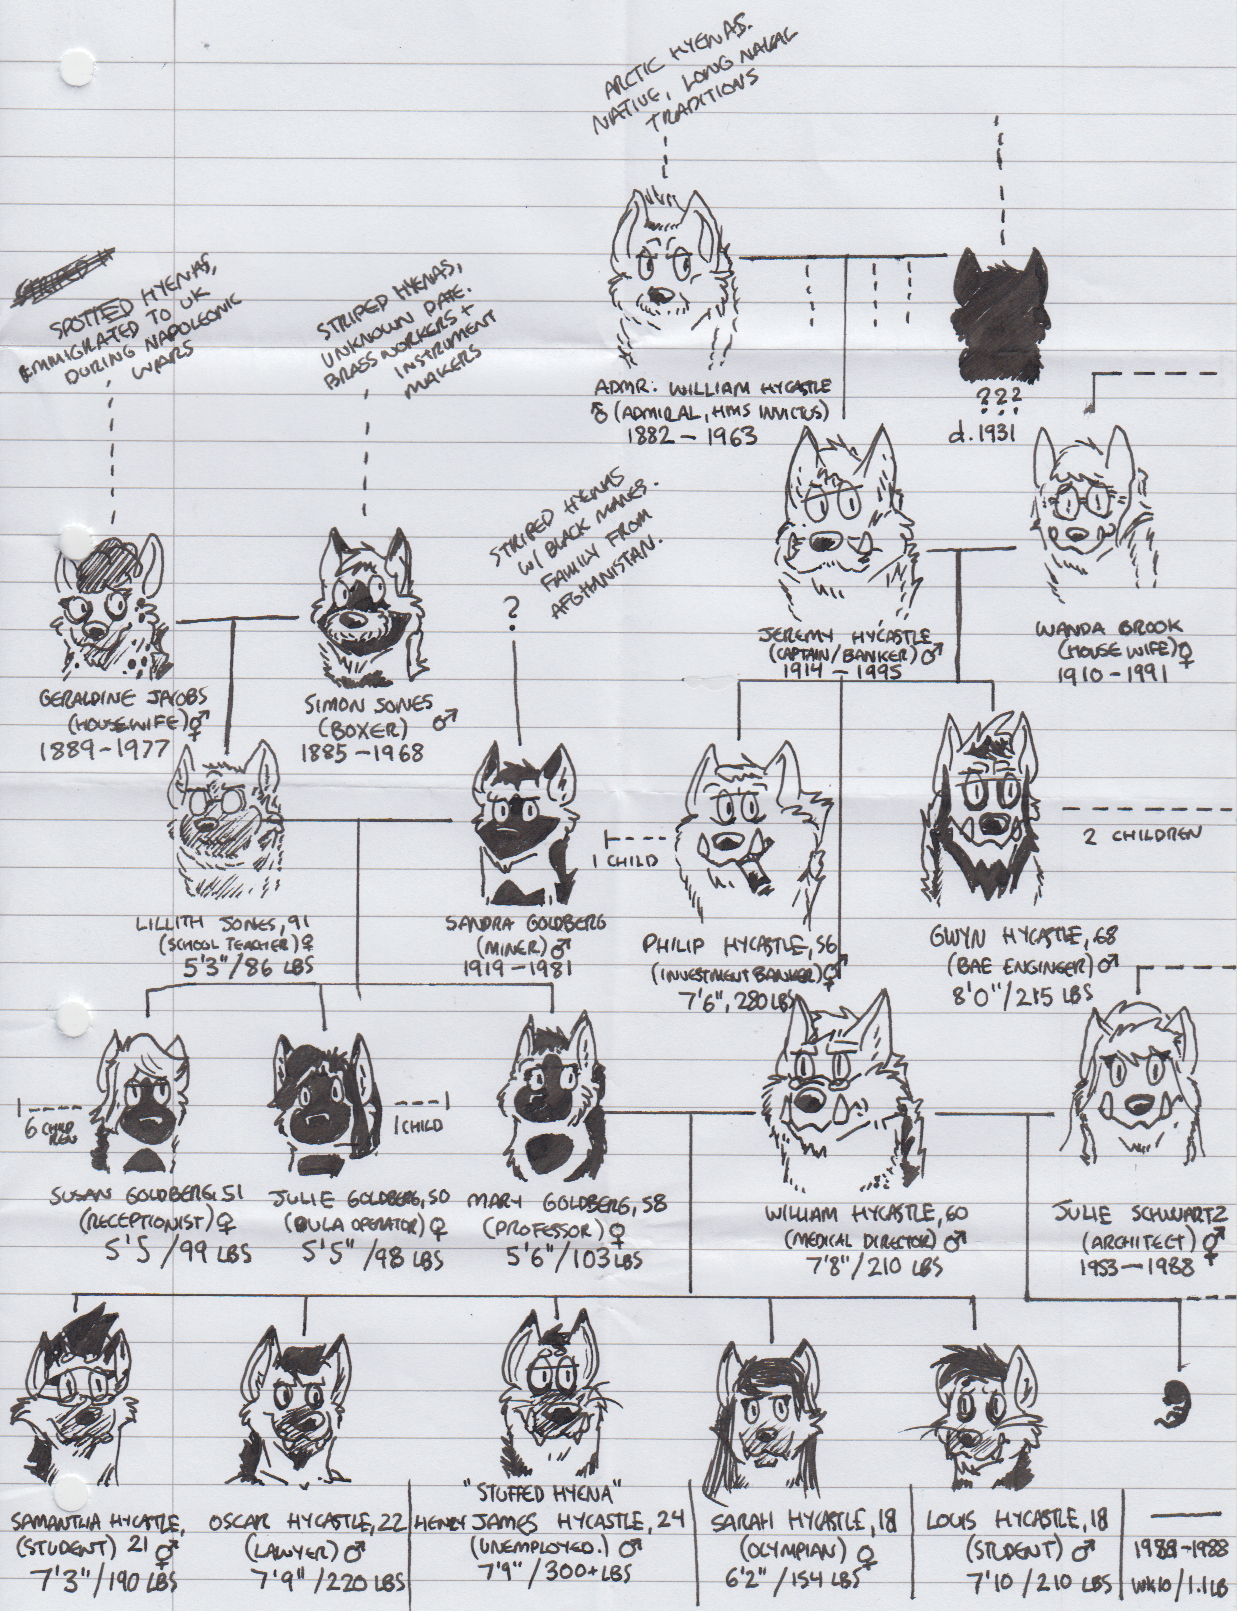 ARCTIC HYENAS.
NATIVE, LONG NAVAL
TRADITIONS
STRIPED H
SPOTTED HYENAS,
EMMIGRATED TO UK
DURING NAPOLEONIC
WARS
STRIPED HYENAS,
UNKNOWN DATE.
BRASSWORKERS +
INSTRUMENT
MAKERS
ADMR. WILLIAM HYCASTLE
♂ (ADMIRAL, HMS INVICTUS)
1882 - 1963
???
d. 1931
STRIPED HYENAS
W/ BLACK MANES.
FAMILY FROM
AFGHANISTAN.
?
GERALDINE JACOBS
(HOUSEWIFE)
1889-1977
SIMON JONES
(BOXER) ♂
1885-1968
JEREMY HYCASTLE
(CAPTAIN/BANKER) ♂
1914 - 1995
WANDA BROOK
(HOUSE WIFE) ♀
1910-1991
1 CHILD
2 CHILDREN
LILLITH JONES, 91
(SCHOOL TEACHER) ♀
5'3"/86 LBS
SANDRA GOLDBERG
(MINER) ♂
1919-1981
PHILIP HYCASTLE, 56
(INVESTMENT BANKER)
7'6", 280 LBS
GWYN HYCASTLE, 68
(BAE ENGINGER) ♂
8'0"/215 LBS
6 CHILD
REN
1 CHILD
SUSAN GOLDBERG, 51
(RECEPTIONIST) ♀
5'5/99 LBS
JULIE GOLDBERG, 50
(OPERATOR) ♀
5'5"/98 LBS
MARY GOLDBERG, 58
(PROFESSOR) ♀
5'6"/103 LBS
WILLIAM HYCASTLE, 60
(MEDICAL DIRECTOR) ♂
7'8"/210 LBS
JULIE SCHWARTZ
(ARCHITECT)
1953-1988
SAMANTHA HYCASTLE,
(STUDENT) 21
7'3"/190 LBS
OSCAR HYCASTLE, 22
(LAWYER) ♂
7'9"/220 LBS
"STUFFED HYENA"
HENRY JAMES HYCASTLE, 24
(UNEMPLOYED.) ♂
7'9"/300+LBS
SARAH HYCASTLE, 18
(OLYMPIAN) ♀
6'2"/154 LBS
LOUIS HYCASTLE, 18
(STUDENT) ♂
7'10/210 LBS
1988-1988
WK10/1.1LB